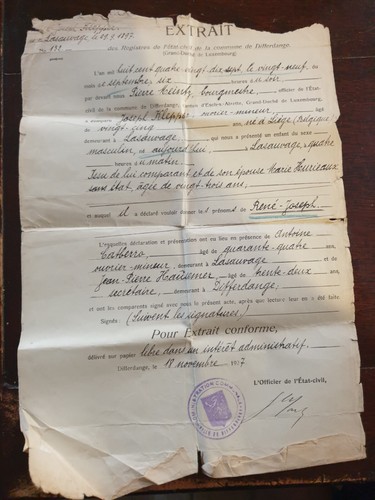 Lasauvage 29.9.1897
No 132
EXTRAIT
des Registres de l'État-civil de la commune de Differdange,
(Grand-Duché de Luxembourg)
L'an mil huit cent quatre vingt-dix sept, le vingt-neuf du
mois de septembre, six heures du soir
par devant nous Pierre Meintz, bourgmestre, officier de l'État-
civil de la commune de Differdange, canton d'Esch-s.-Alzette, Grand-Duché de Luxembourg,
a comparu Joseph Klepper, ouvrier-mineur,
âgé de vingt-cinq ans, né à Liège (Belgique)
demeurant à Lasauvage, qui nous a présenté un enfant du sexe
masculin, né aujourd'hui à Lasauvage, à quatre
heures du matin
Issu de lui comparant et de son épouse Marie Hurieaux
sans état, âgée de vingt-trois ans,
et auquel il a déclaré vouloir donner les prénoms de René-Joseph.
Lesquelles déclaration et présentation ont eu lieu en présence de Antoine
âgé de quarante-quatre ans,
ouvrier-mineur, demeurant à Lasauvage et
Jean-Pierre Haussmer, âgé de trente-deux ans,
secrétaire, demeurant à Differdange;
et ont les comparants signé avec nous le présent acte, après que lecture leur en a été faite
Signés: (Suivent les signatures)
Pour Extrait conforme,
délivré sur papier libre dans un intérêt administratif.
Differdange, le 18 novembre 1937
L'Officier de l'État-civil,
ADMINISTRATION COMMUNALE
DE DIFFERDANGE